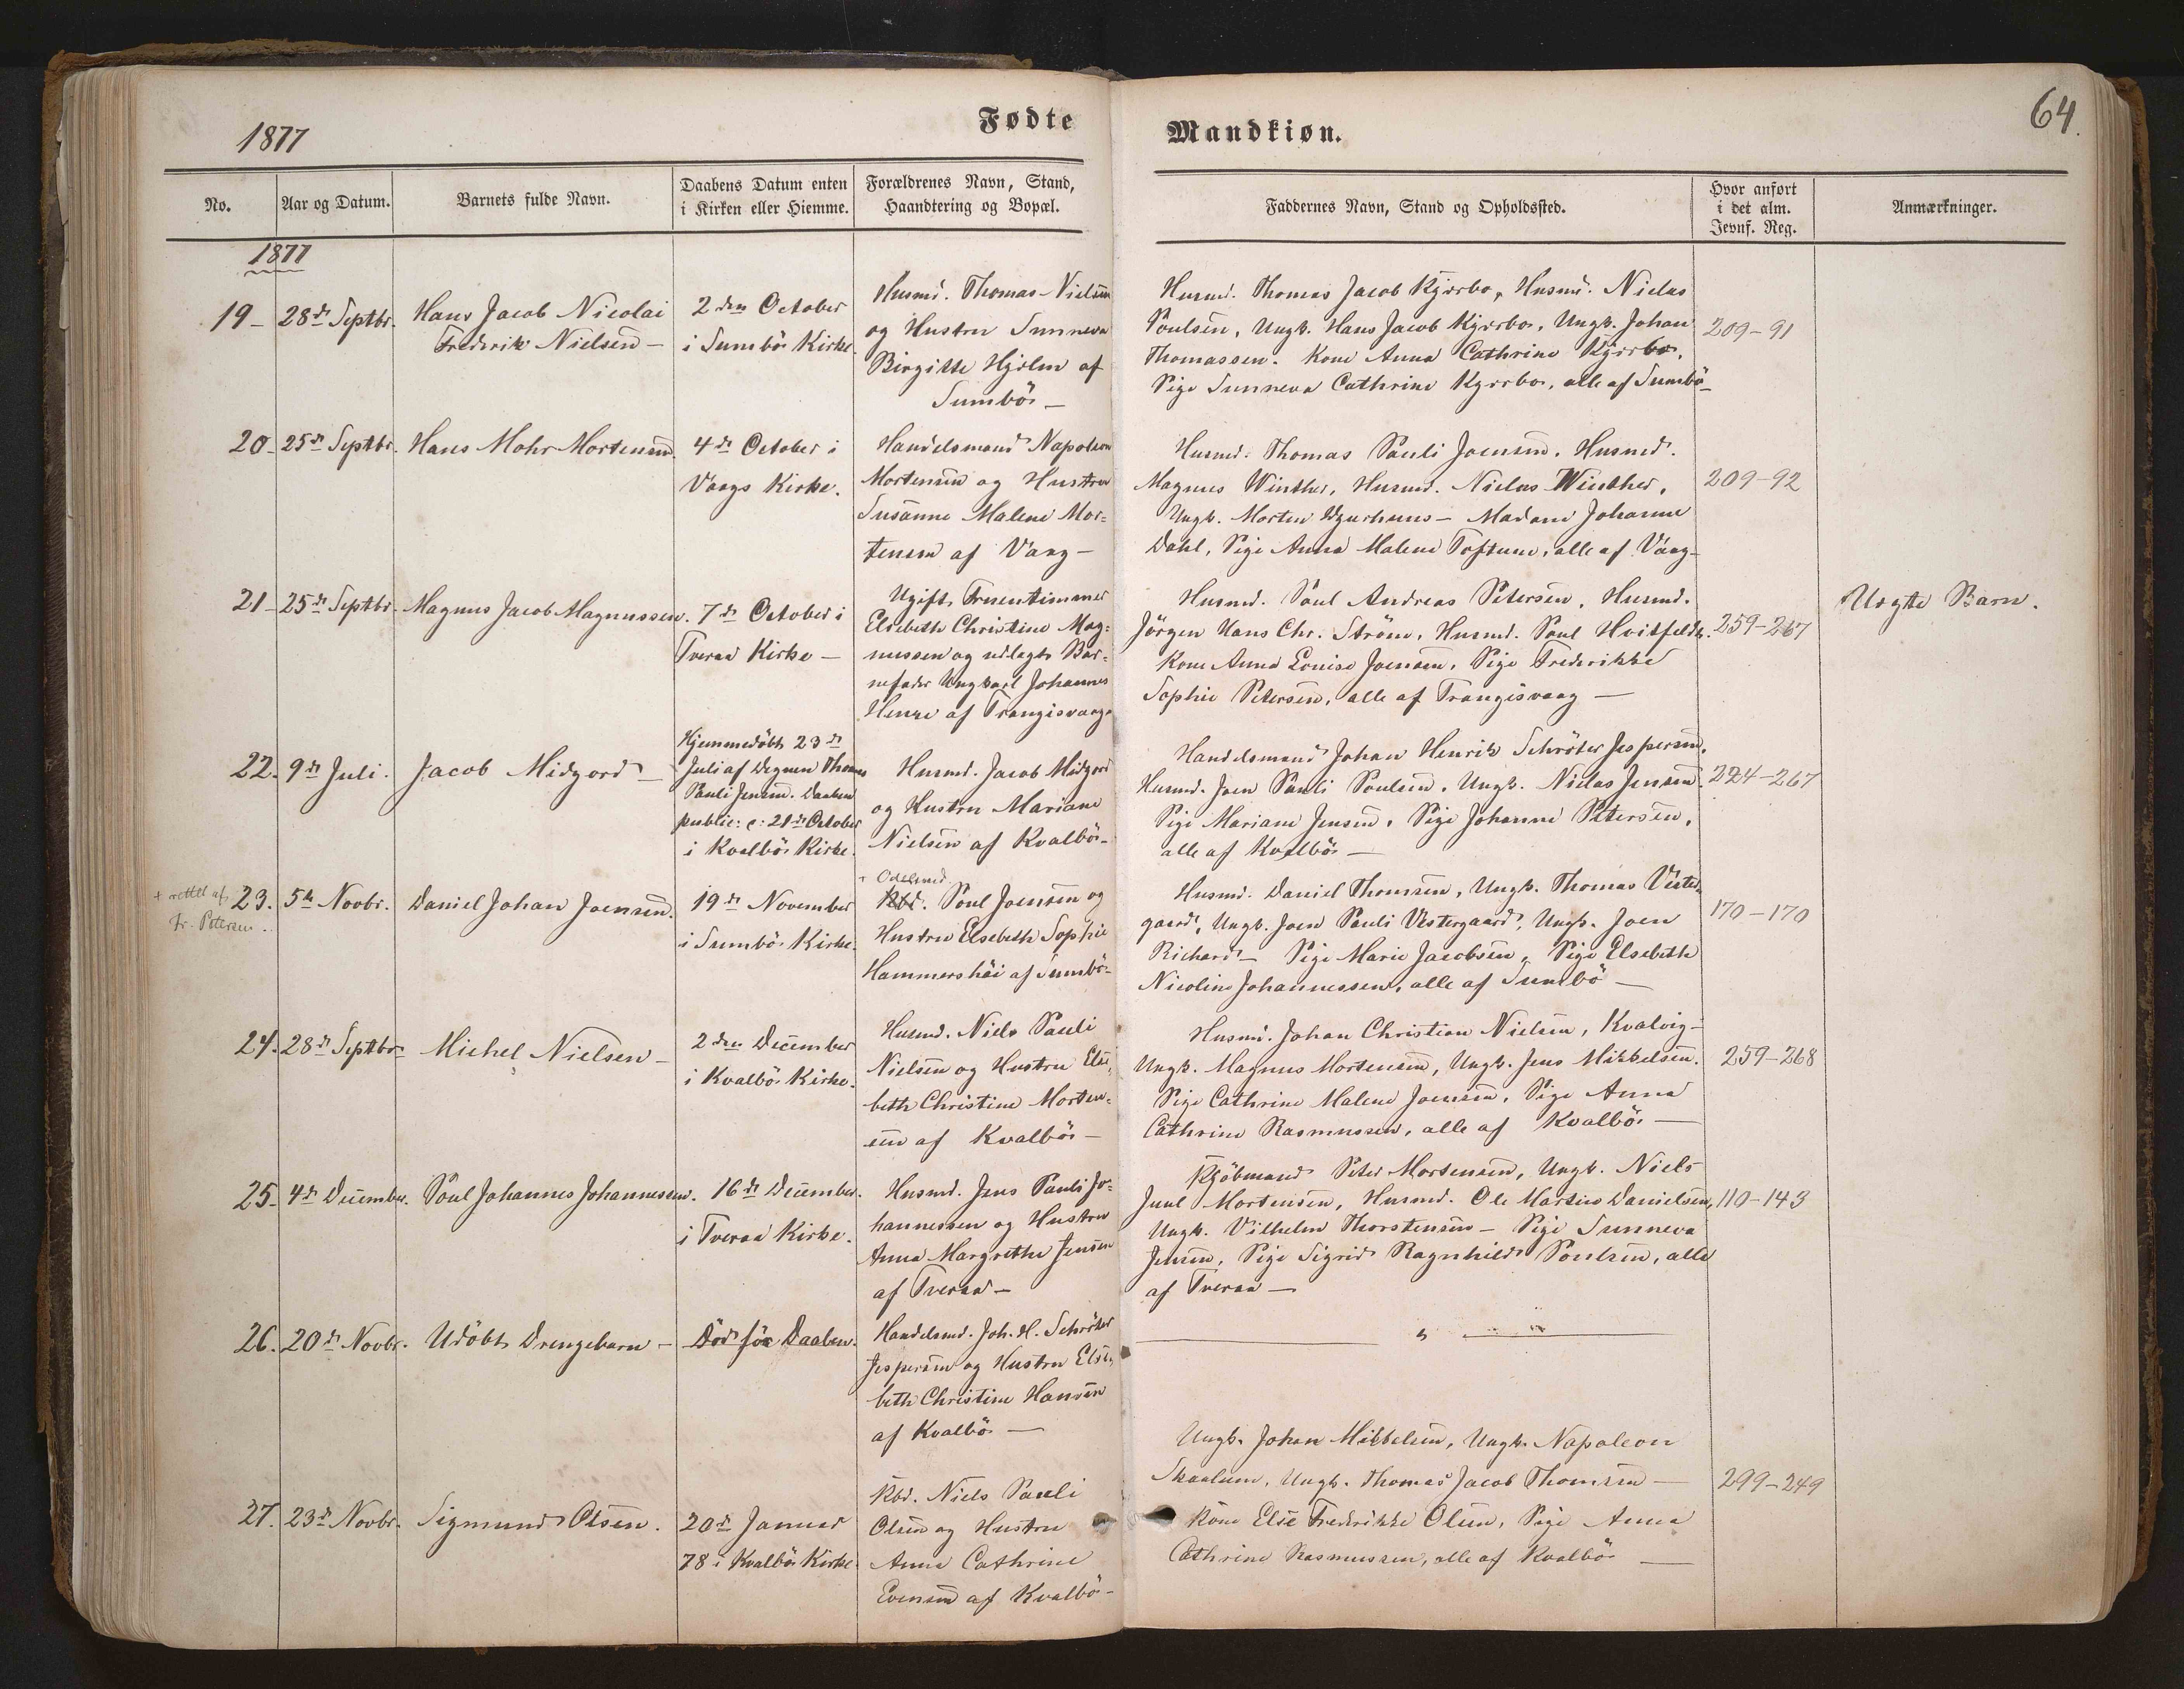 1877
Fødte
Mandkiøn.
64.
No.
Aar og Datum.
Barnets fulde Navn.
Daabens Datum enten
i Kirken eller Hiemme.
Forældrenes Navn, Stand,
Haandtering og Bopæl.
Faddernes Navn, Stand og Opholdssted.
Hvor anført
i det alm.
Jevnf. Reg.
Anmærkninger.
1877
19-
28de Septbr.
Hans Jacob Nicolai
Frederik Nielsen -
2den October
i Sumbö Kirke.
Husmd. Thomas Nielsen
og Hustru Sunneva
Birgitte Hjelm af
Sumbö -
Husmd. Thomas Jacob Kjærbo, Husmd. Niclas
Poulsen, Ungk. Hans Jacob Kjærbo, Ungk. Johan
Thomassen. Kone Anna Cathrine Kjærbo,
Pige Sunneva Cathrine Kjærbo, alle af Sumbö
209-91
20-
25de Septbr.
Hans Mohr Mortensen.
4de October i
Vaags Kirke.
Handelsmand Napoleon
Mortensen og Hustru
Susanne Malene Mor=
tensen af Vaag -
Husmd. Thomas Pauli Joensen, Husmd.
Magnus Winther, Husmd. Niclas Winther,
Ungk. Morten Djurhuus - Madame Johanne
Dahl, Pige Anna Malene Toftum, alle af Vaag-
209-92
21-
25de Septbr.
Magnus Jacob Magnussen.
7de October i
Tveraa Kirke -
Ugift Fruentimmer
Elsebeth Christine Mag=
nussen og udlagt Bar=
nefader Ungkarl Johannes
Henze af Trangisvaag.
Husmd. Poul Andreas Petersen, Husmd.
Jörgen Hans Chr. Ström, Husmd. Poul Hvitfeldt.
Kone Anna Louise Joensen, Pige Frederikke
Sophie Petersen, alle af Trangisvaag -
259-267
Uægte Barn.
22.
9de Juli.
Jacob Midgord -
Hjemmedöbt 23de
Juli af Degnen Thomas
Pauli Jensen. Daaben
public: c: 21de October
i Kvalbö Kirke.
Husmd. Jacob Midgord
og Hustru Mariane
Nielsen af Kvalbö-
Handelsmand Johan Henrik Schröter Jespersen,
Husmd. Joen Pauli Poulsen, Ungk. Niclas Jensen.
Pige Mariane Jensen, Pige Johanne Petersen,
alle af Kvalbö -
224-267
+ rettet af
Fr. Petersen.
23.
5te Novbr.
Daniel Johan Joensen.
19de November
i Sumbö Kirke.
+ Odelsmd.
Kbd. Poul Joensen og
Hustru Elsebeth Sophie
Hammershöi af Sumbö-
Husmd. Daniel Thomsen, Ungk. Thomas Vester
gaard, Ungk. Joen Pauli Vestergaard, Ungk. Joen
Richard - Pige Marie Jacobsen, Pige Elsebeth
Nicoline Johannessen, alle af Sumbö -
170-170
24.
28de Septbr.
Michel Nielsen -
2den December
i Kvalbö Kirke.
Husmd. Niels Pauli
Nielsen og Hustru Else,
beth Christine Morten=
sen af Kvalbö -
Husmd. Johan Christian Nielsen, Kvalvig-
Ungk. Magnus Mortensen, Ungk. Jens Mikkelsen.
Pige Cathrine Malene Joensen, Pige Anna
Cathrine Rasmussen, alle af Kvalbö -
259-268
25-
4de December.
Poul Johannes Johannessen.
16de December.
i Tveraa Kirke.
Husmd. Jens Pauli Jo=
hannessen og Hustru
Anna Margrethe Jensen
af Tveraa -
Kjöbmand Peter Mortensen, Ungk. Niels
Juul Mortensen, Husmd. Ole Martin Danielsen,
Ungk. Vilhelm Thorstensen - Pige Sunneva
Jensen, Pige Sigrid Ragnhild Poulsen, alle
af Tveraa -
110-143
26.
20de Novbr.
Udöbt Drengebarn -
Död för Daaben.
Handelsmd. Joh. H. Schröter
Jespersen og Hustru Else,
beth Christine Hansen
af Kvalbö -
27.
23de Novbr.
Sigmund Olsen.
20de Januar
78 i Kvalbö Kirke.
Kbd. Niels Pauli
Olsen og Hustru
Anna Cathrine
Evensen af Kvalbö-
Ungk. Johan Mikkelsen, Ungk. Napoleon
Skaalum, Ungk. Thomas Jacob Thomsen -
Kone Else Frederikke Olsen, Pige Anna
Cathrine Rasmussen, alle af Kvalbö -
299-249